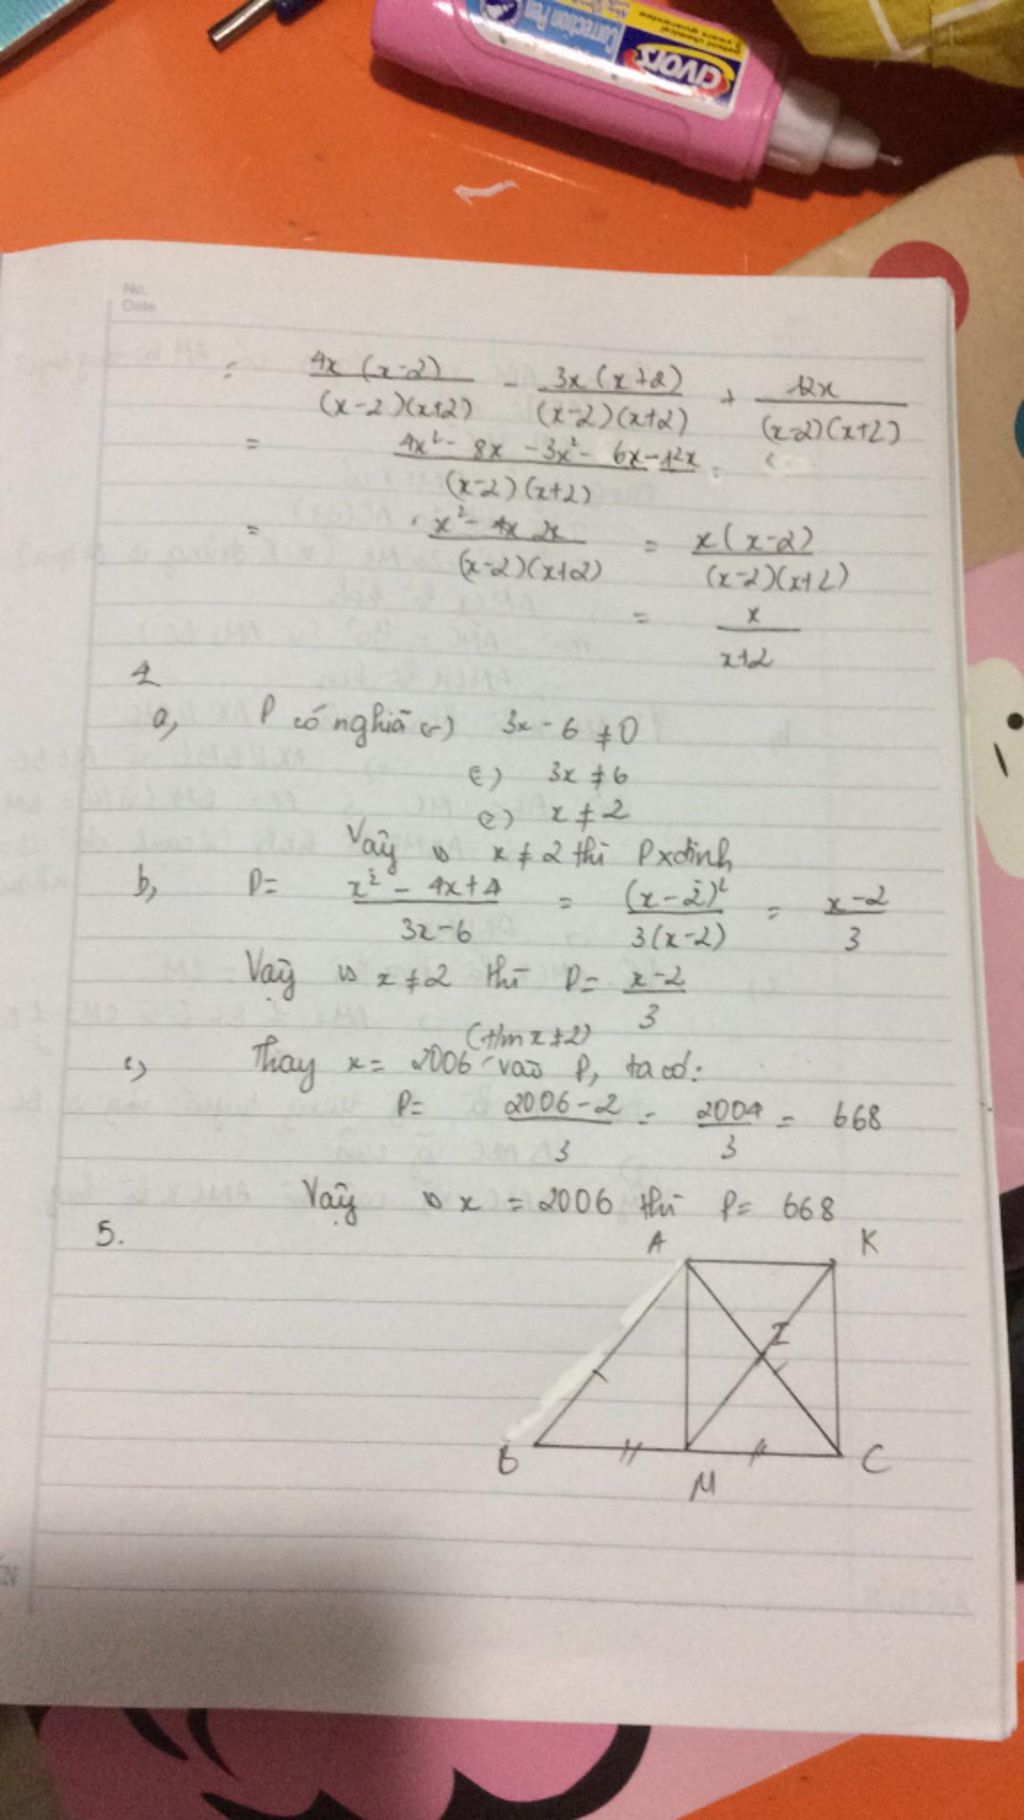 Correction Pen
avors
No.
Date
= 4x (x-2) / (x-2)(x+2) - 3x (x+2) / (x-2)(x+2) + 12x / (x-2)(x+2)
= 4x² - 8x - 3x² - 6x - 12x / (x-2)(x+2) =
= x² - 4x 2x / (x-2)(x+2) = x(x-2) / (x-2)(x+2)
= x / x+2
4
a, P có nghiã (=) 3x - 6 ≠ 0
(=) 3x ≠ 6
(=) x ≠ 2
Vaỹ x ≠ 2 thì P xđinh
b, P = x² - 4x + 4 / 3x - 6 = (x-2)² / 3(x-2) = x-2 / 3
Vaỹ x ≠ 2 thì P = x-2 / 3
(t/m x ≠ 2)
c, Thay x = 2006 vào P, ta có:
P = 2006 - 2 / 3 = 2004 / 3 = 668
Vaỹ x = 2006 thì P = 668
5.
A K
I
B M C